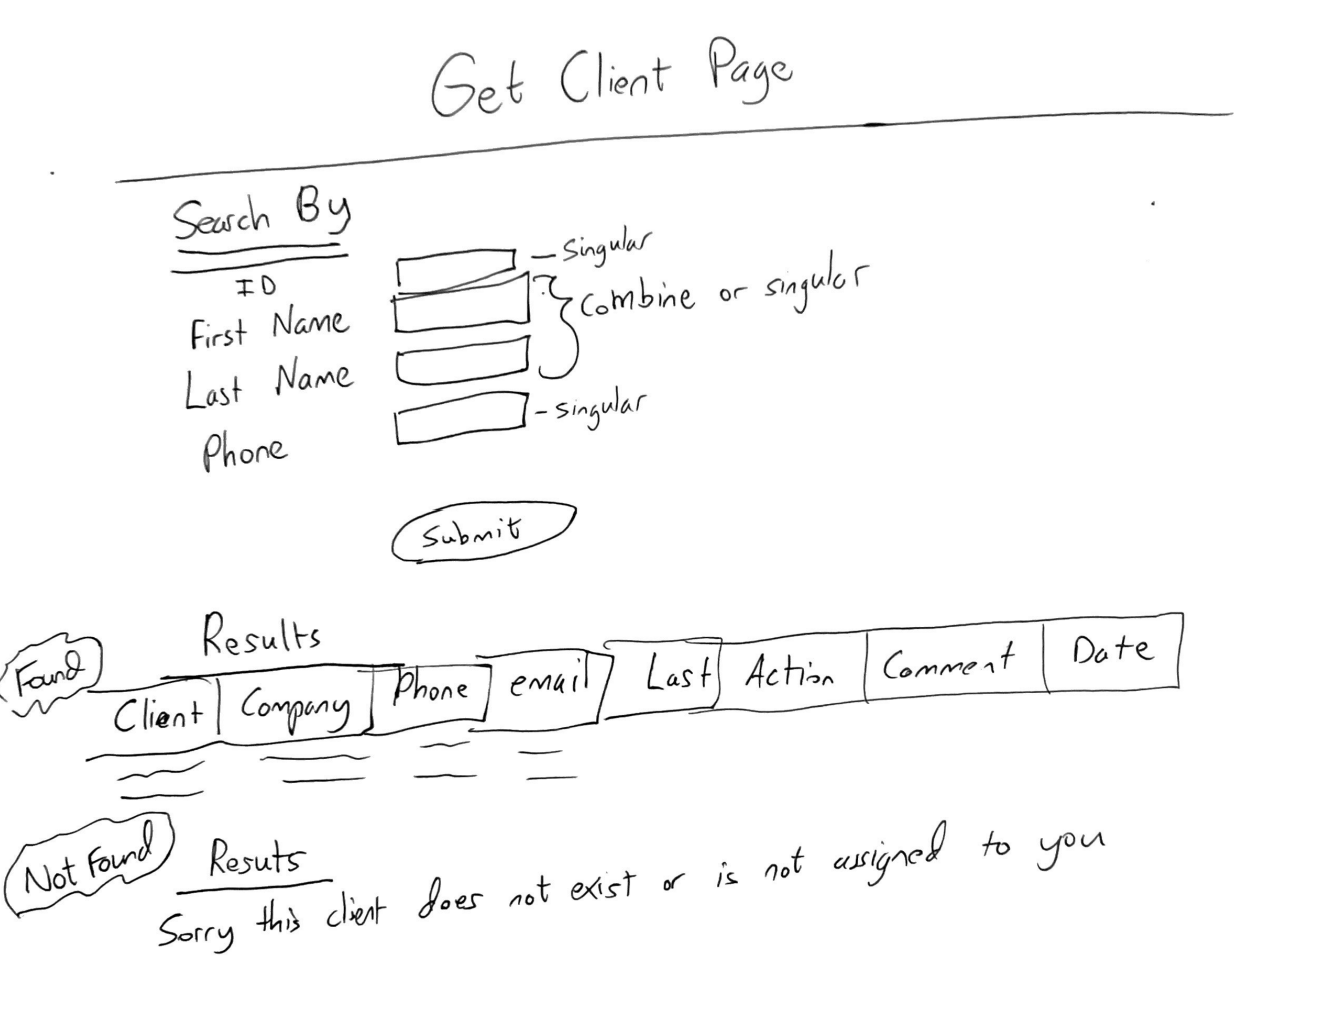 Get Client Page
Search By
ID - Singular
First Name Combine or singular
Last Name
Phone - singular
Submit
Found
Results
Client Company Phone email Last Action Comment Date
Not Found
Resuts
Sorry this client does not exist or is not assigned to you